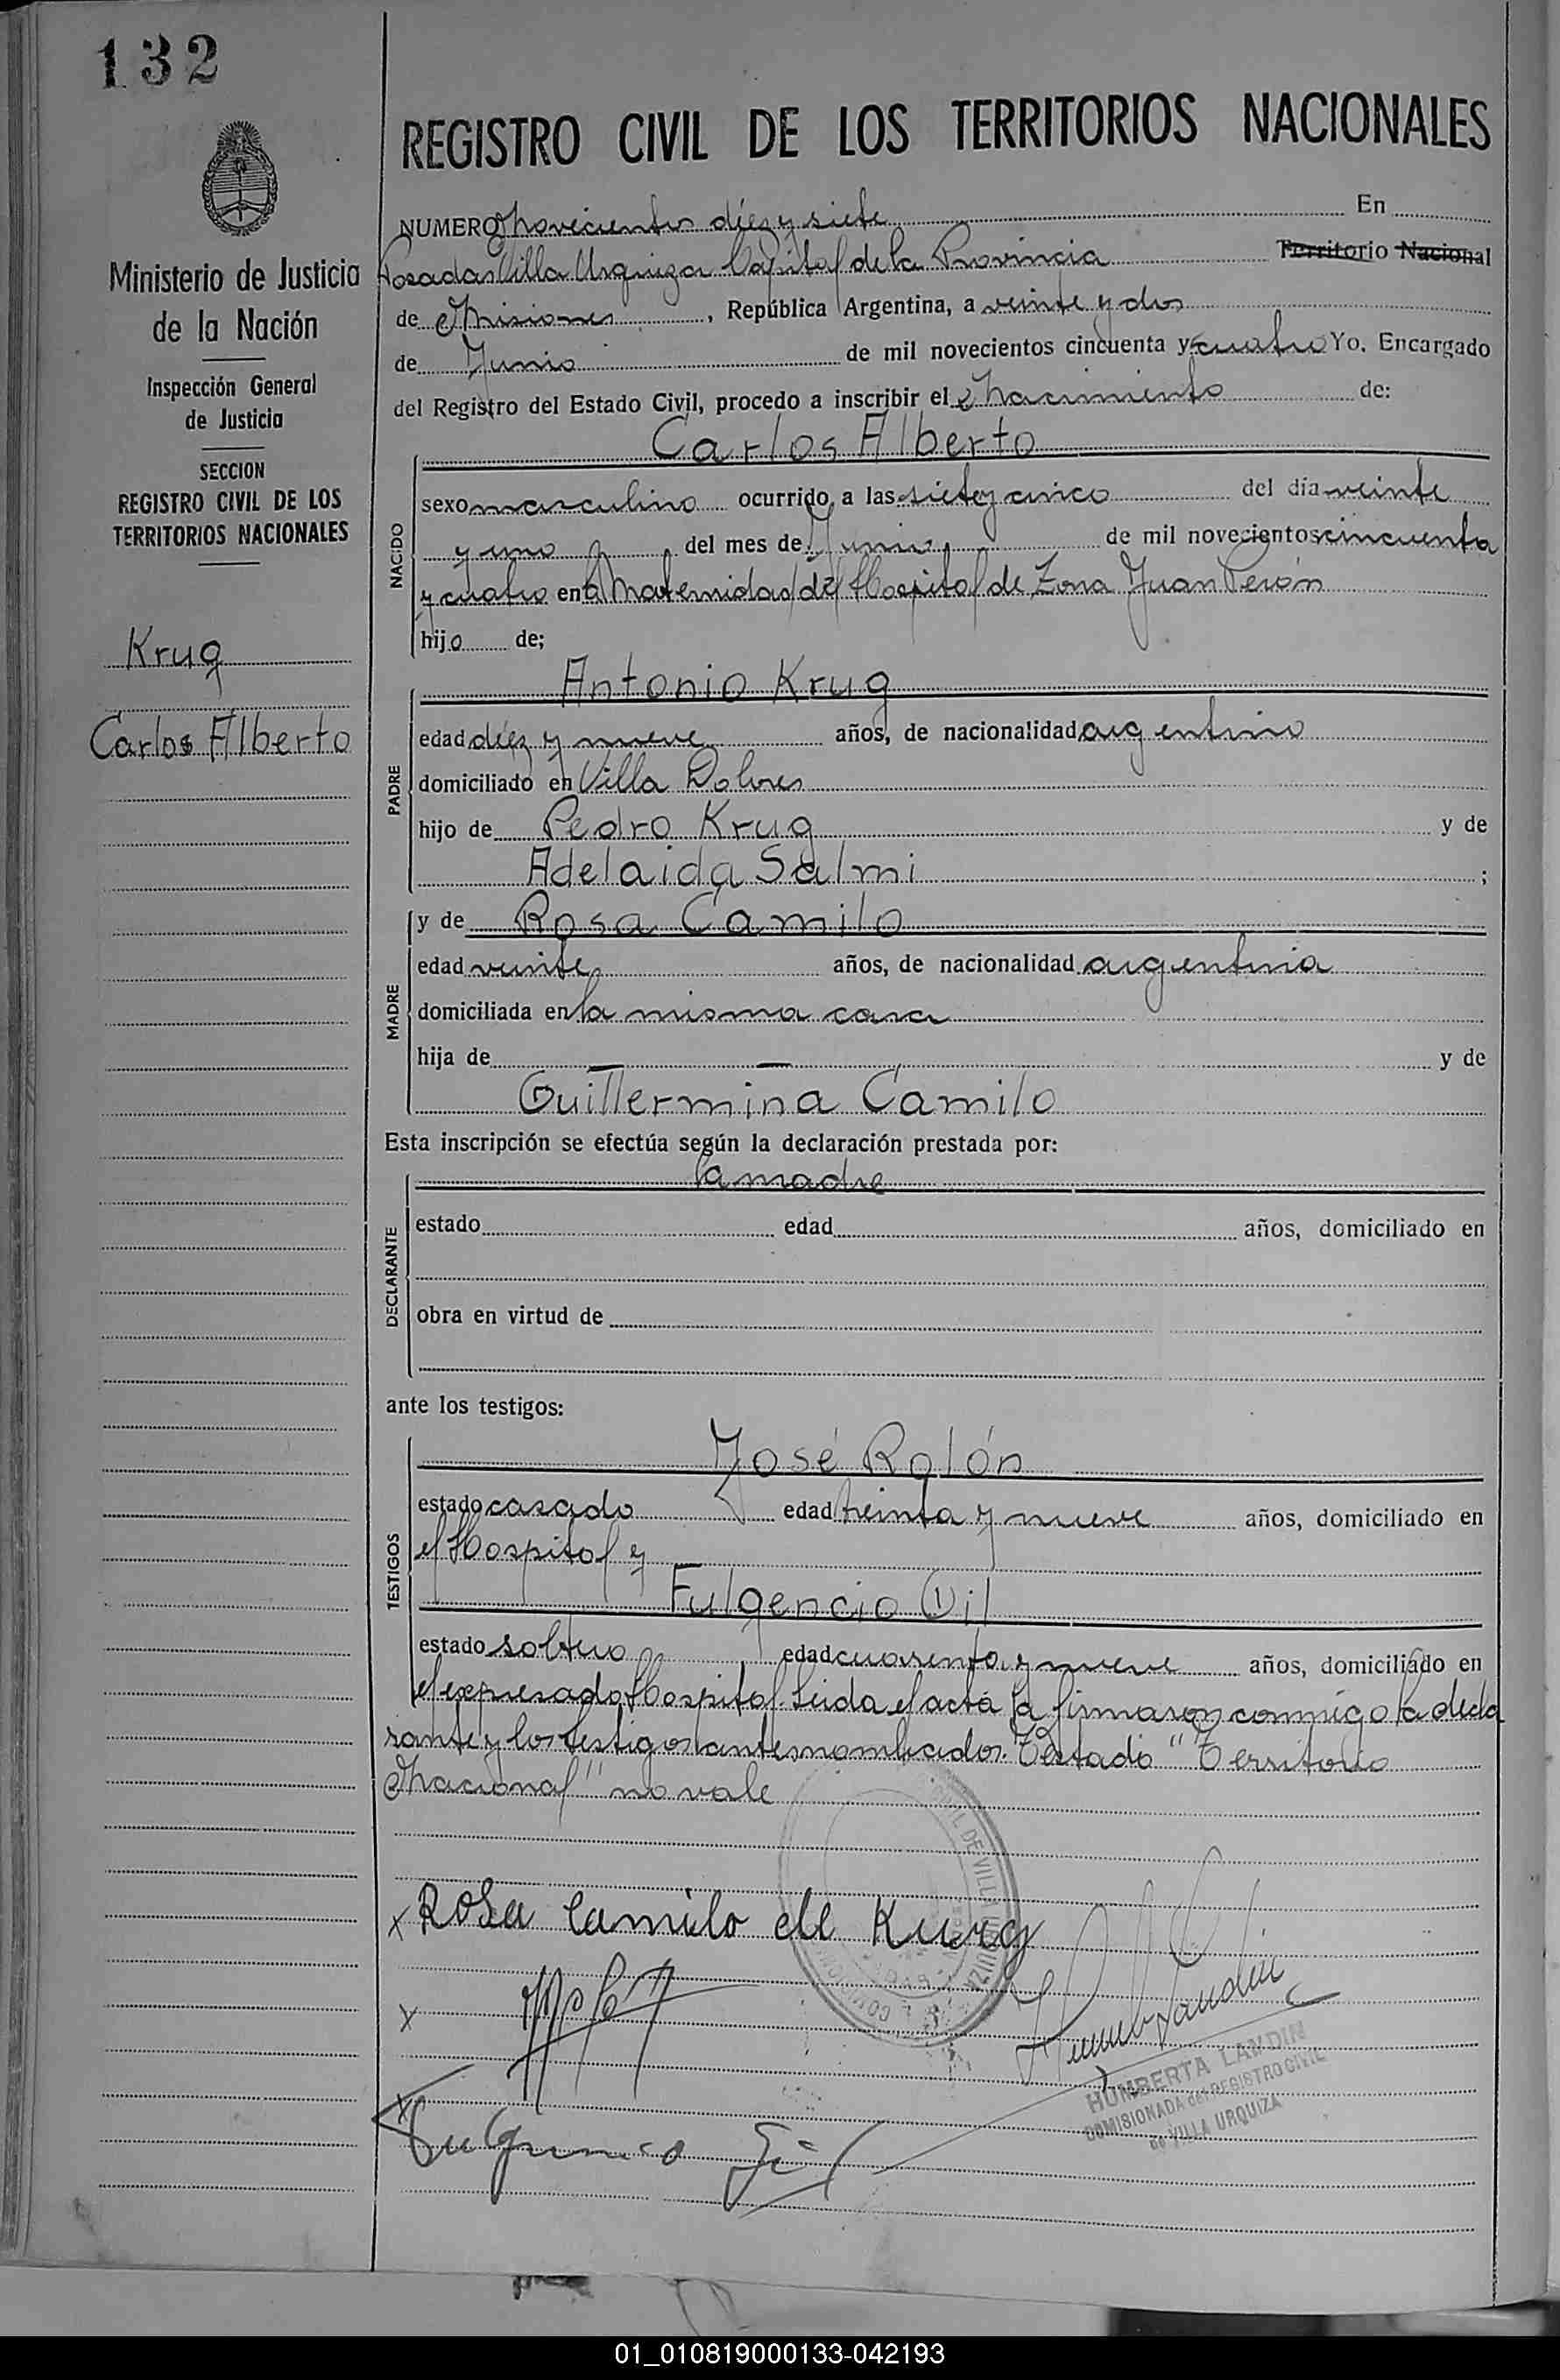 132
REGISTRO CIVIL DE LOS TERRITORIOS NACIONALES
Ministerio de Justicia
de la Nación
Inspección General
de Justicia
SECCION
REGISTRO CIVIL DE LOS
TERRITORIOS NACIONALES
Krug
Carlos Alberto
NUMERO Novecientos diez y siete En
Posadas Villa Urquiza Capital de la Provincia Territorio Nacional
de Misiones, República Argentina, a veinte y dos
de Junio de mil novecientos cincuenta y cuatro Yo, Encargado
del Registro del Estado Civil, procedo a inscribir el Nacimiento de:
Carlos Alberto
NACIDO
sexo masculino ocurrido a las siete y cinco del día veinte
y uno del mes de Junio de mil novecientos cincuenta
y cuatro en la Maternidad del Hospital de Zona Juan Perón
hijo de;
Antonio Krug
PADRE
edad diez y nueve años, de nacionalidad argentino
domiciliado en Villa Dolores
hijo de Pedro Krug y de
Adelaida Salmi ;
y de Rosa Camilo
MADRE
edad veinte años, de nacionalidad argentina
domiciliada en la misma casa
hija de — — y de
Guillermina Camilo
Esta inscripción se efectúa según la declaración prestada por:
la madre
DECLARANTE
estado edad años, domiciliado en
obra en virtud de
ante los testigos:
José Rolón
TESTIGOS
estado casado edad treinta y nueve años, domiciliado en
el Hospital y
Fulgencio Gil
estado soltero edad cuarenta y nueve años, domiciliado en
el expresado Hospital. Leida el acta la firmaron conmigo la decla
rante y los testigos antes nombrados. Testado "Territorio
Nacional" no vale
x Rosa Camilo de Kurg
x
x Fulgencio Gil
HUMBERTA LANDIN
COMISIONADA del REGISTRO CIVIL
de VILLA URQUIZA
01_010819000133-042193